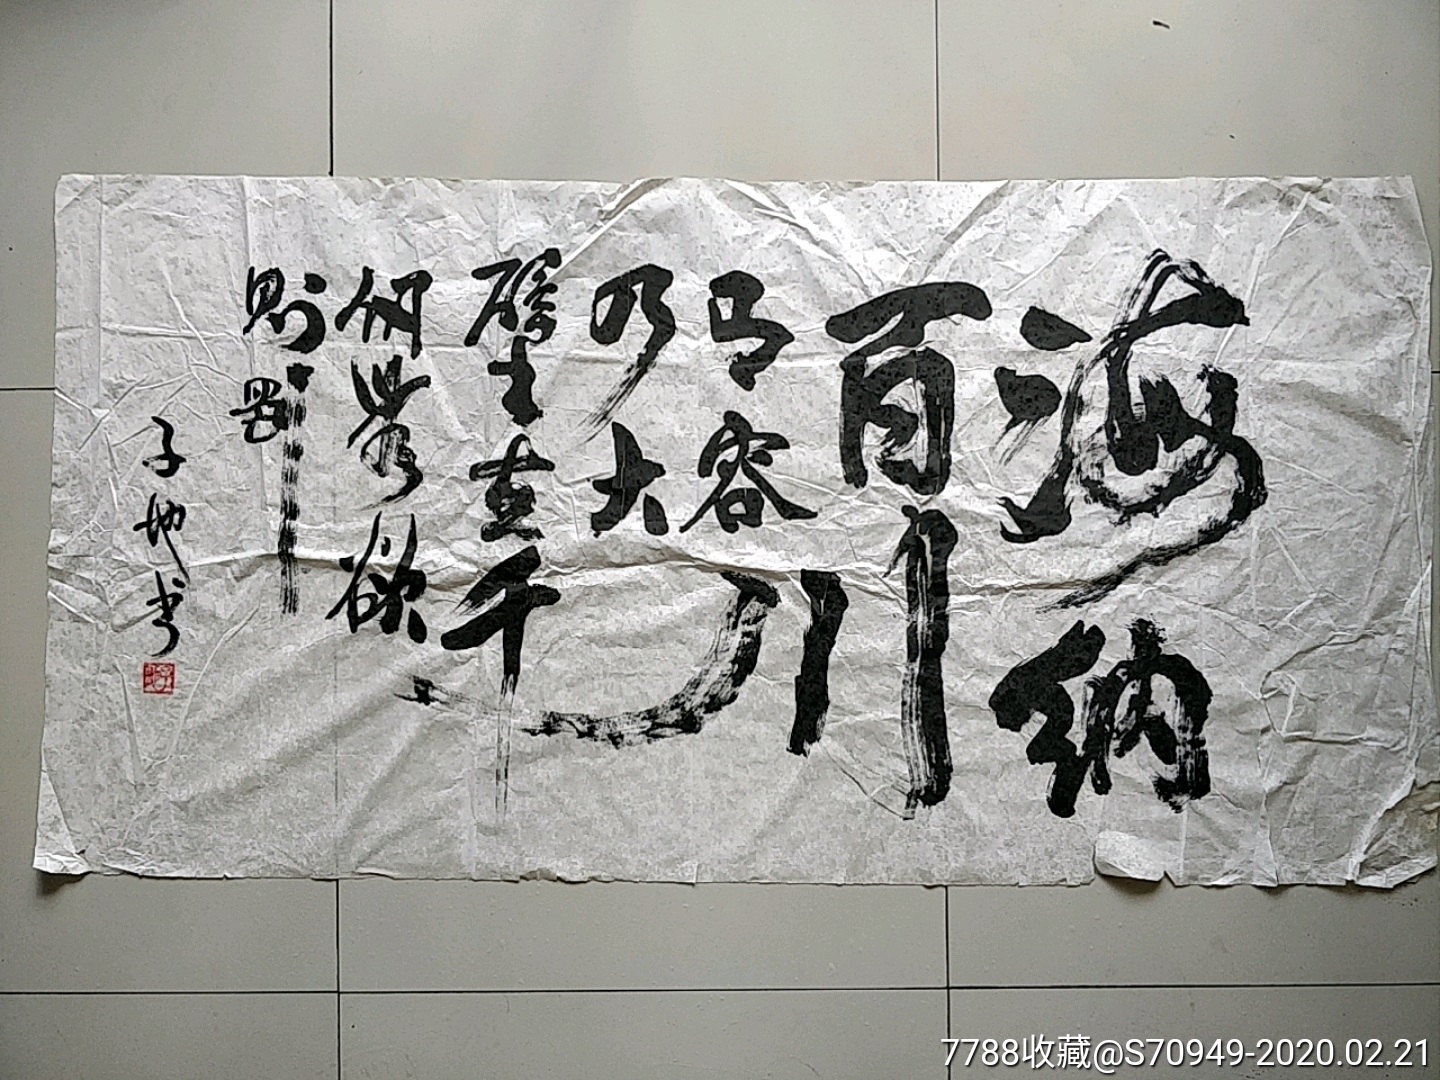 海纳
百川
有容
乃大
壁立千
仞無欲
則剛
子地书
7788收藏@S70949-2020.02.21